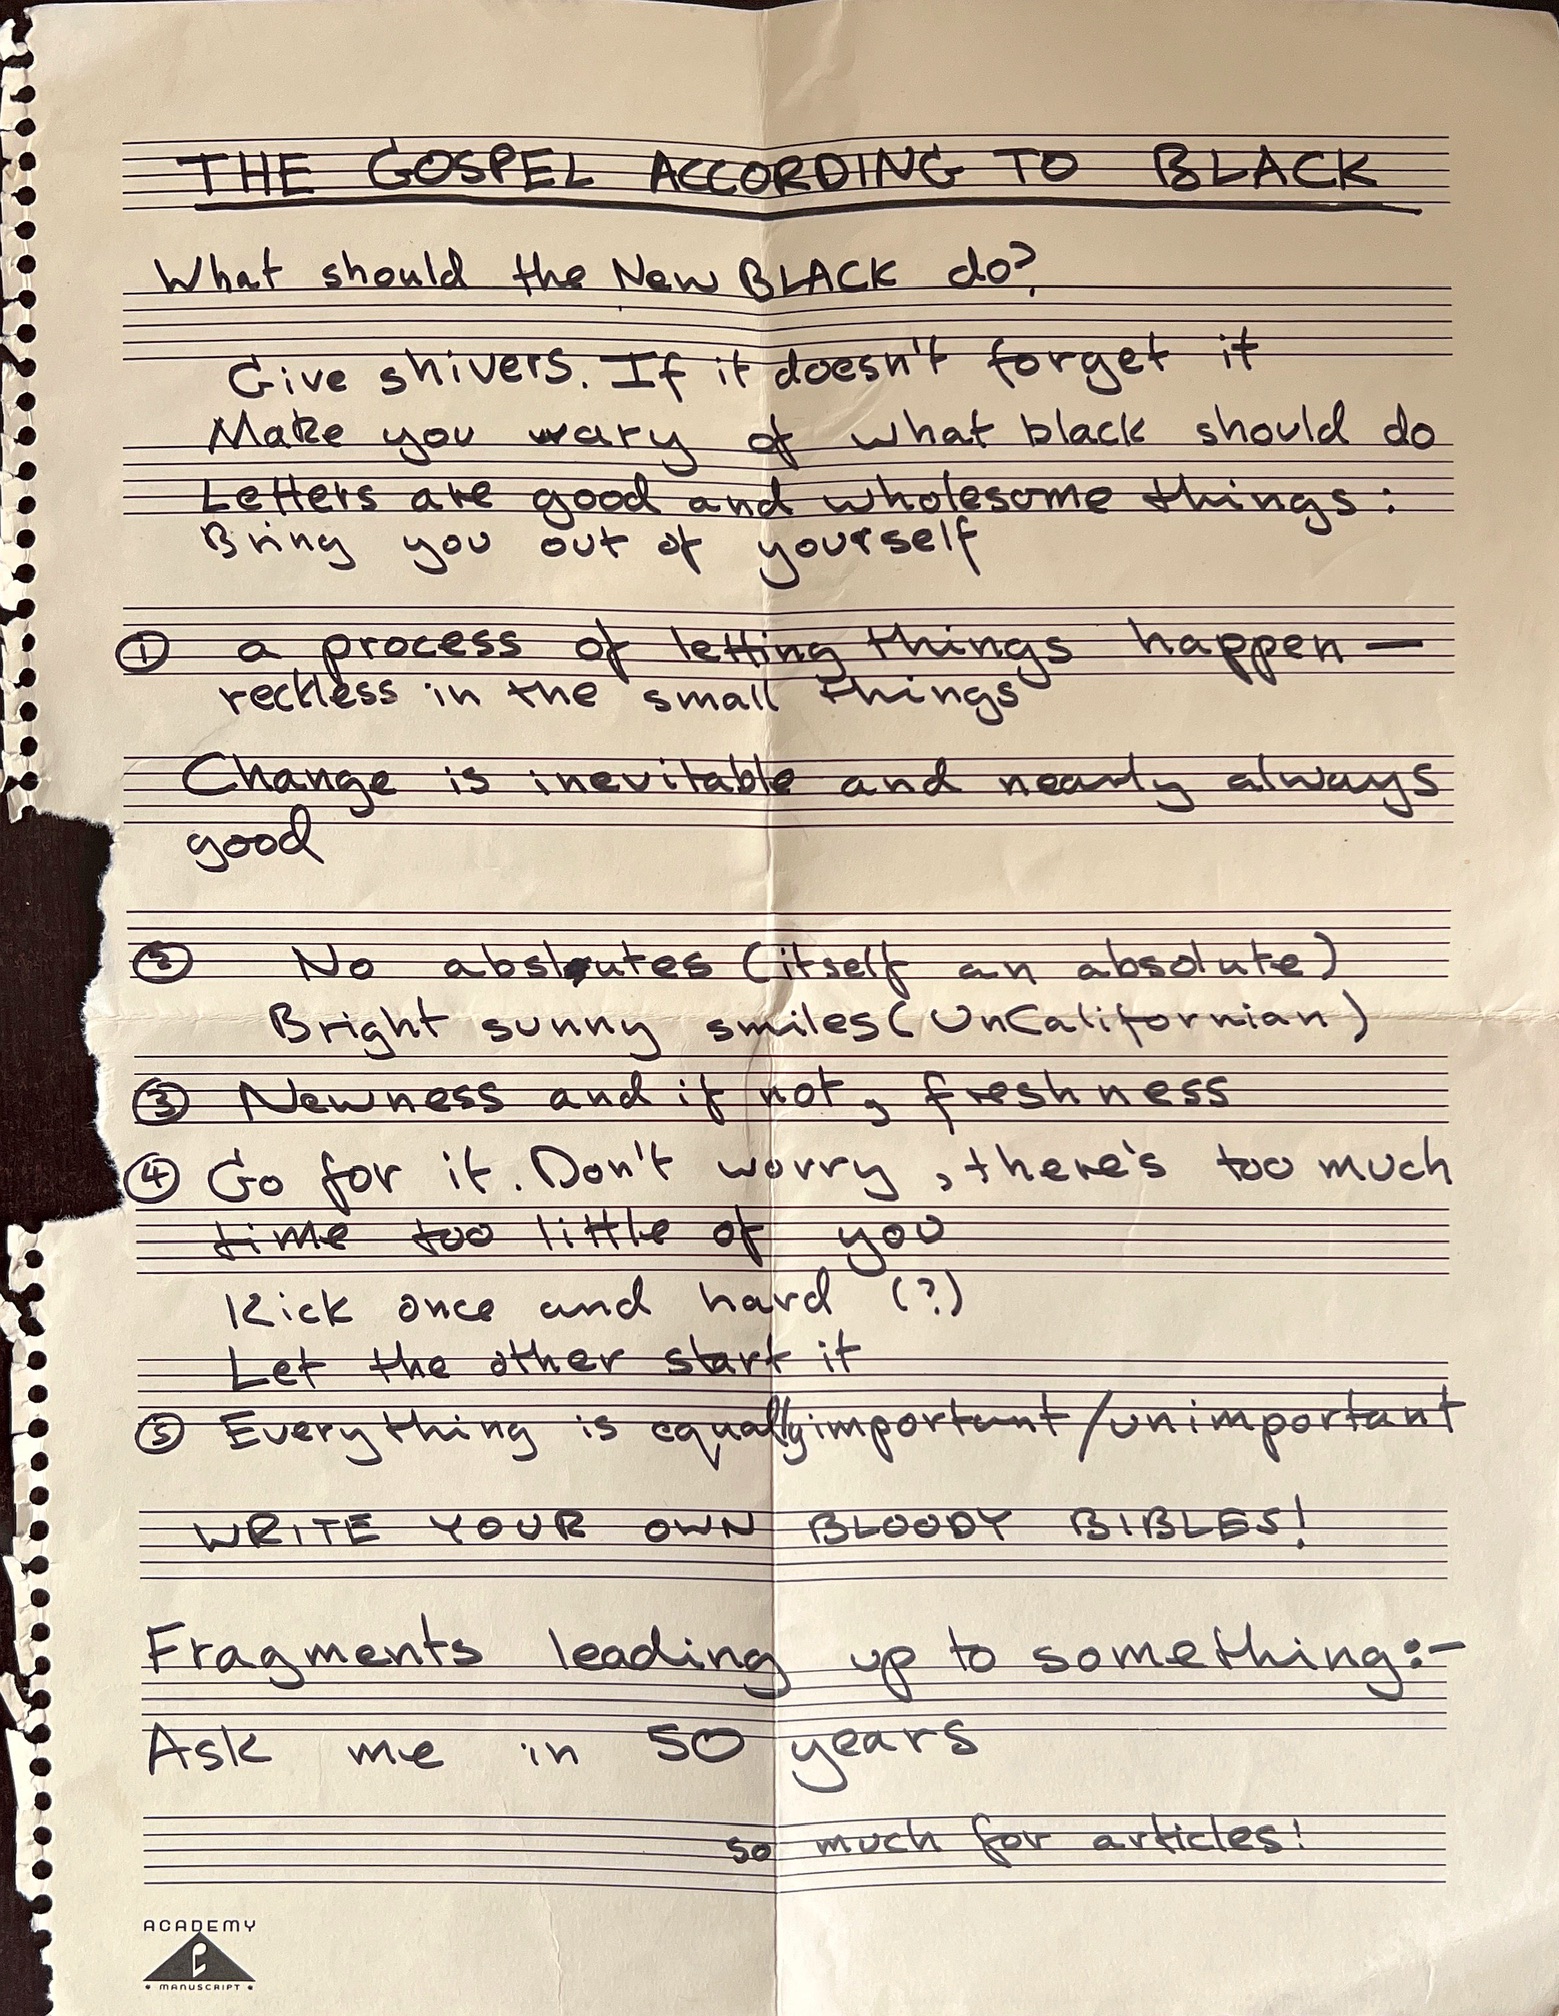 THE GOSPEL ACCORDING TO BLACK
What should the New BLACK do?
Give shivers. If it doesn't forget it
Make you wary of what black should do
Letters are good and wholesome things:
Bring you out of yourself
① a process of letting things happen —
reckless in the small things
Change is inevitable and nearly always
good
② No absloutes (itself an absolute)
Bright sunny smiles (UnCalifornian)
③ Newness and if not, freshness
④ Go for it. Don't worry, there's too much
time too little of you
Kick once and hard (?)
Let the other start it
⑤ Everything is equally important/unimportant
WRITE YOUR OWN BLOODY BIBLES!
Fragments leading up to something:-
Ask me in 50 years
so much for articles!
ACADEMY
• MANUSCRIPT •